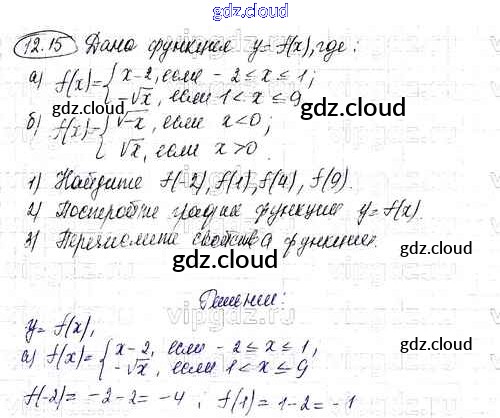 gdz.cloud
12.15 Дана функция y = f(x), где:
а) f(x) = { x-2, если -2 ≤ x ≤ 1;
-√x, если 1 < x ≤ 9
gdz.cloud gdz.cloud
б) f(x) = { √-x, если x < 0;
√x, если x > 0.
gdz.cloud
1) Найдите f(-2), f(1), f(4), f(9).
2) Постройте график функции y = f(x).
gdz.cloud
3) Перечислите свойства функции.
gdz.cloud
Решение:
y = f(x),
а) f(x) = { x-2, если -2 ≤ x ≤ 1,
-√x, если 1 < x ≤ 9
gdz.cloud
f(-2) = -2-2 = -4; f(1) = 1-2 = -1